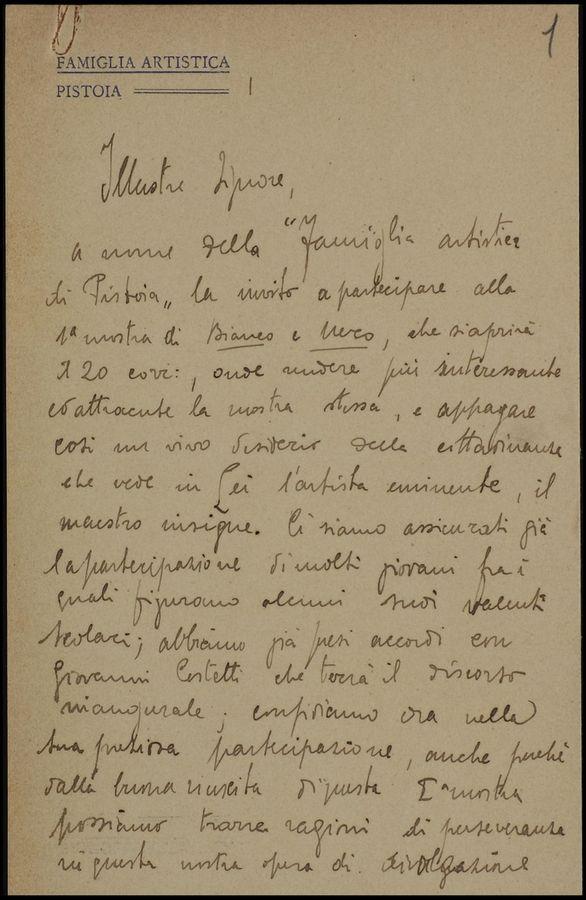 1
FAMIGLIA ARTISTICA
PISTOIA
1
Illustre Signore,
a nome della "Famiglia artistica
di Pistoia„ la invito a partecipare alla
1ª mostra di Bianco e Nero, che si aprirà
il 20 corr:, onde rendere più interessante
ed attraente la mostra stessa, e appagare
così un vivo desiderio della cittadinanza
che vede in Lei l'artista eminente, il
maestro insigne. Ci siamo assicurati già
la partecipazione di molti giovani fra i
quali figurano alcuni suoi valenti
scolari; abbiamo già presi accordi con
Giovanni Costetti che terrà il discorso
inaugurale; confidiamo ora nella
sua preziosa partecipazione, anche perchè
dalla buona riuscita di questa Iª mostra
possiamo trarre ragioni di perseveranza
in questa nostra opera di divulgazione